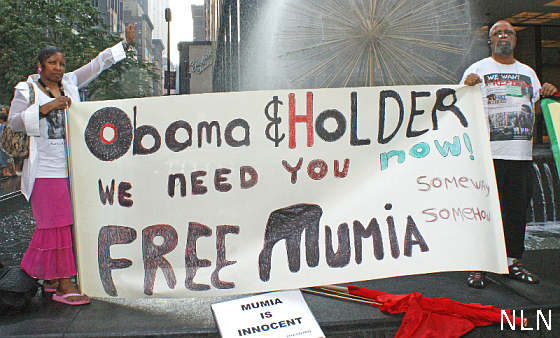 Obama & HOLDER
WE NEED YOU now!
SOMEWAY
SOMEHOW
FREE MUMIA
WE WANT
FREEDOM
MUMIA
IS
INNOCENT
NLN